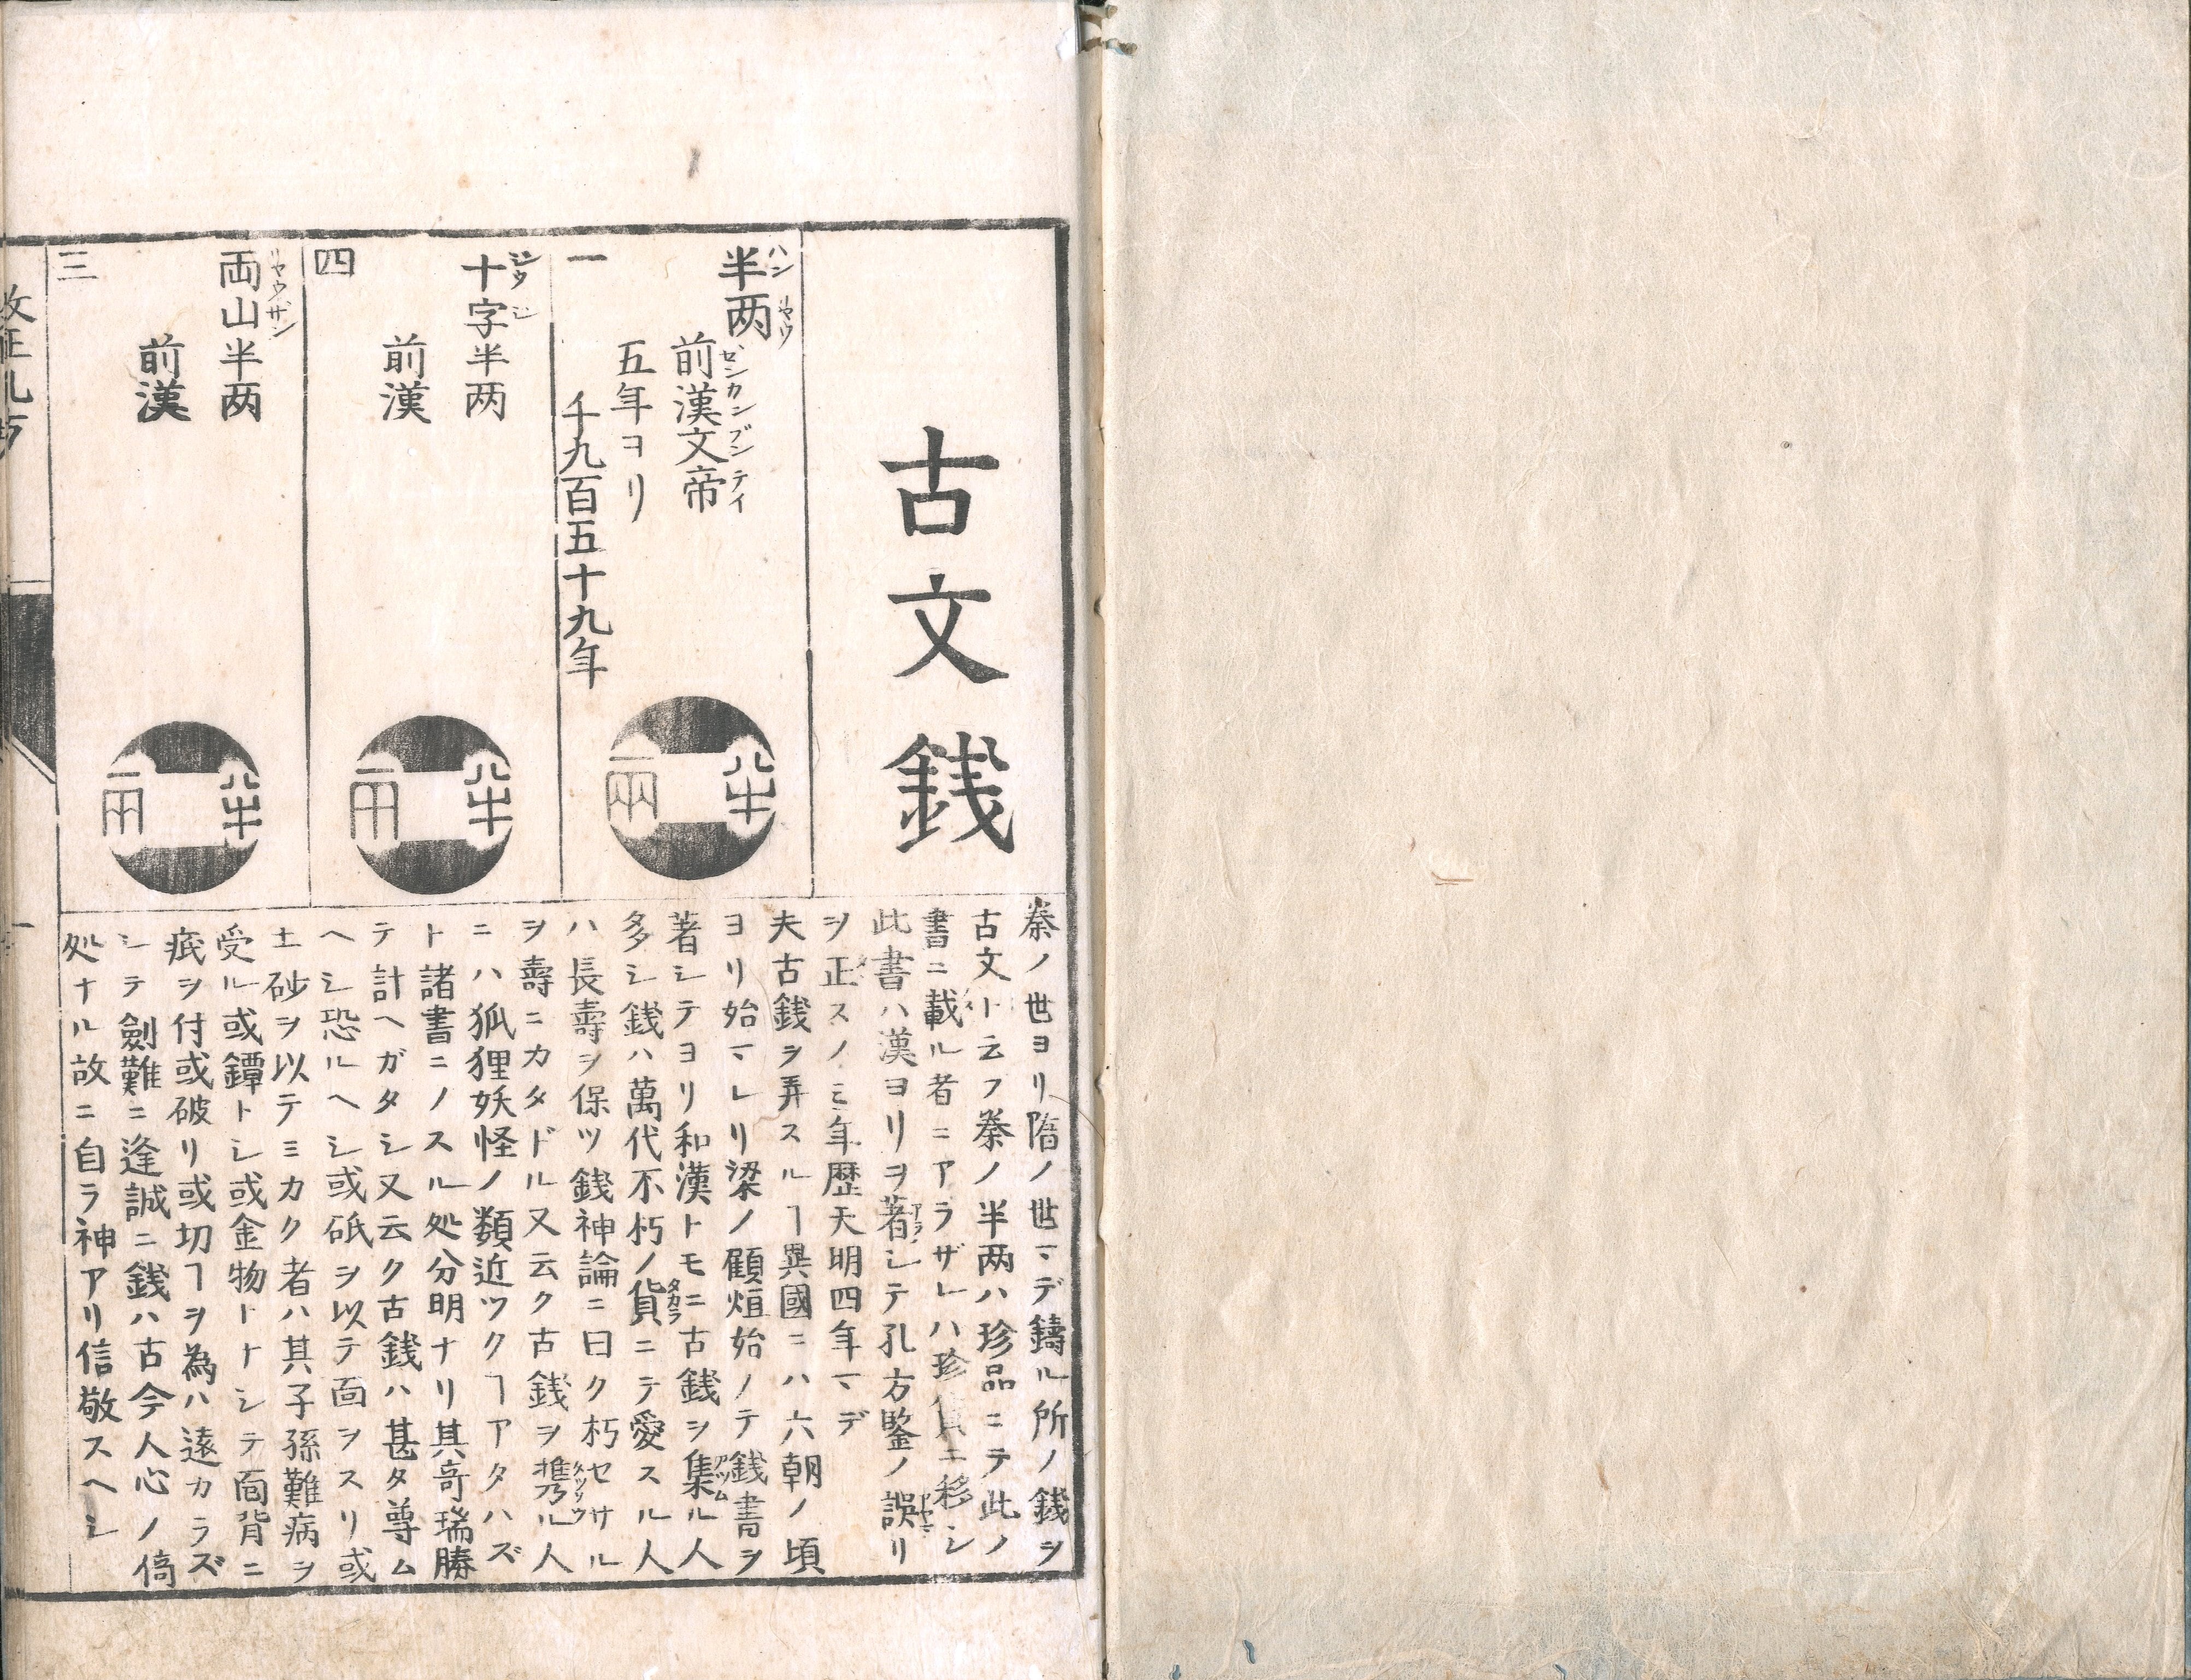 古文銭
半两
ハンリヤウ
前漢文帝
ゼンカンブンテイ
五年ヨリ
千九百五十九年
一
十字半两
ジウジ
前漢
四
両山半两
リヤウザン
前漢
三
秦ノ世ヨリ隋ノ世マデ鑄ル所ノ銭ヲ
古文ト云フ秦ノ半两ハ珍品ニテ此ノ
書ニ載ル者ニアラザレハ珍 エ移シ
此書ハ漢ヨリヲ著シテ孔方鑒ノ誤リ
ヲ正スノミ年歴天明四年マデ
夫古銭ヲ弄スルヿ異國ニハ六朝ノ頃
ヨリ始マレリ梁ノ顧烜始ノテ銭書ヲ
著シテヨリ和漢トモニ古銭ヲ集ル人
多シ銭ハ萬代不朽ノ貨ニテ愛スル人
ハ長壽ヲ保ツ銭神論ニ曰ク朽セサル
ヲ壽ニカタドル又云ク古銭ヲ携ル人
ニハ狐狸妖怪ノ類近ツクヿアタハズ
ト諸書ニノスル処分明ナリ其竒瑞勝
テ計ヘガタシ又云ク古銭ハ甚タ尊ム
ヘシ恐ルヘシ或砥ヲ以テ面ヲスリ或
土砂ヲ以テミカク者ハ其子孫難病ヲ
受ル或鐔トシ或金物トナシテ面背ニ
疵ヲ付或破リ或切ヿヲ為ハ遠カラズ
シテ劍難ニ逢誠ニ銭ハ古今人心ノ
処ナル故ニ自ラ神アリ信敬スヘシ